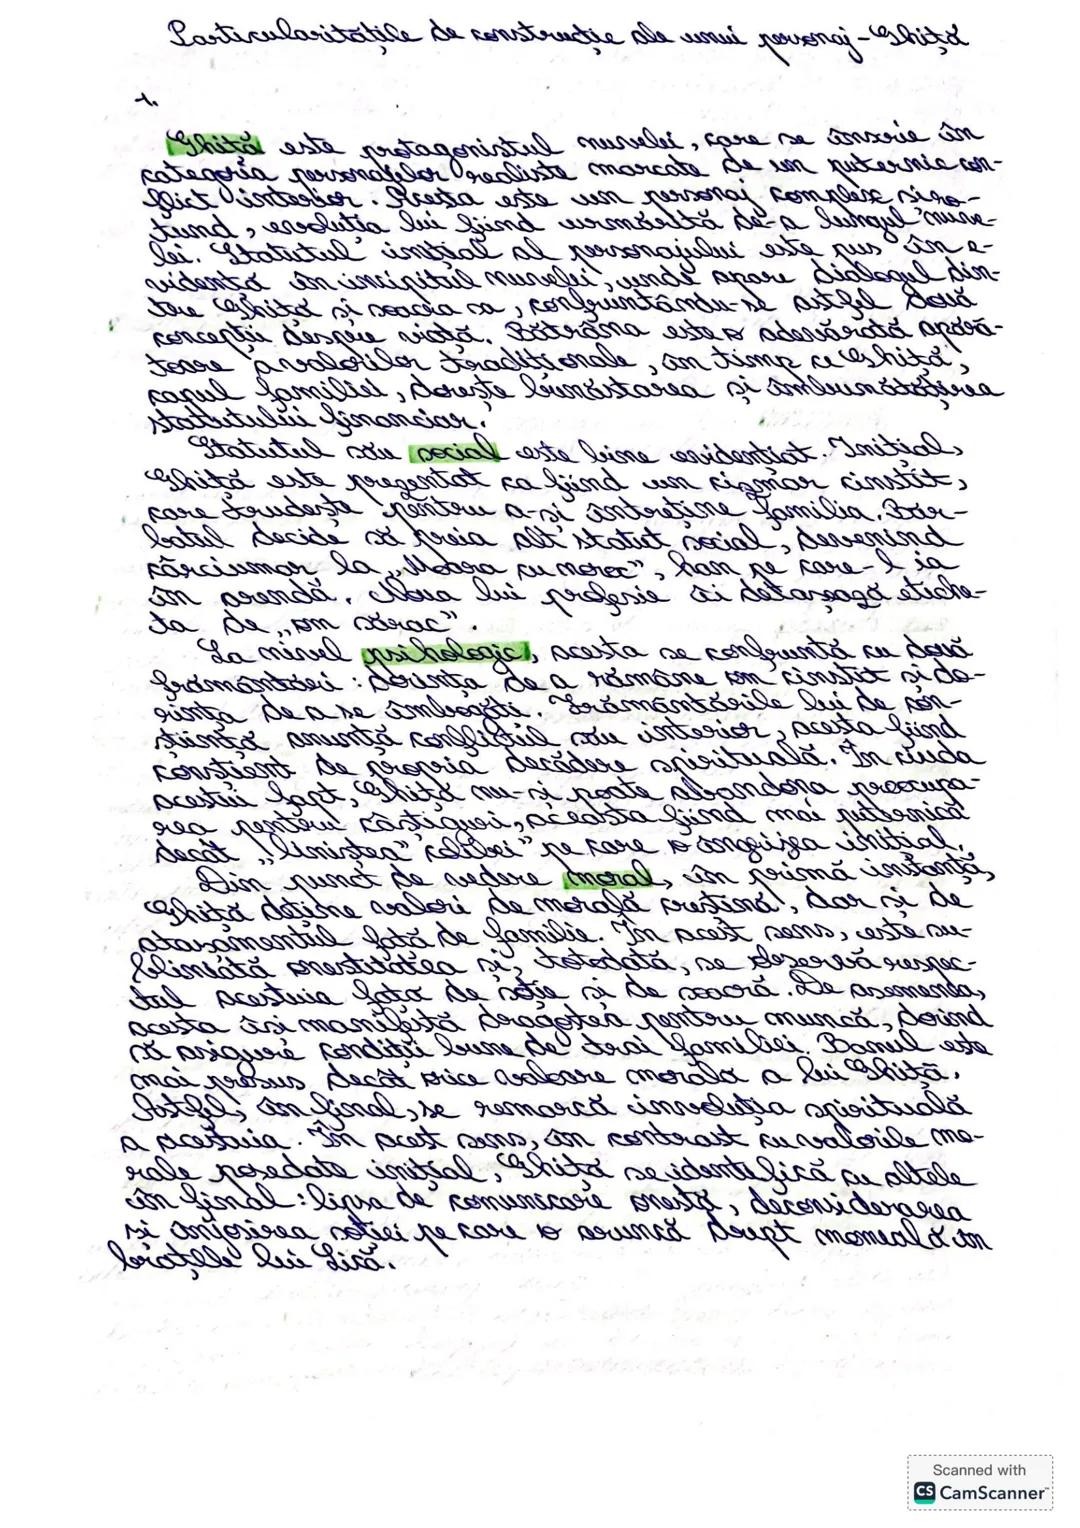 Particularitățile de construcție ale unui personaj - Ghiță
1.
Ghiță este protagonistul nuvelei, care se înscrie în
categoria personajelor realiste marcate de un puternic con-
flict interior. Acesta este un personaj complex și ro-
tund, evoluția lui fiind urmărită de-a lungul nuve-
lei. Statutul inițial al personajului este pus în e-
vidență în incipitul nuvelei, unde apare dialogul din-
tre Ghiță și soacra sa, confruntându-se astfel două
concepții despre viață. Bătrâna este o adevărată apără-
toare a valorilor tradiționale, în timp ce Ghiță,
capul familiei, dorește bunăstarea și îmbunătățirea
statutului financiar.
Statutul său social este bine evidențiat. Inițial,
Ghiță este prezentat ca fiind un cizmar cinstit,
care trudește pentru a-și întreține familia. Băr-
batul decide să preia alt statut social, devenind
cârciumar la „Moara cu noroc”, han pe care-l ia
în arendă. Noua lui profesie îi detașează etiche-
ta de „om sărac”.
La nivel psihologic, acesta se confruntă cu două
frământări: dorința de a rămâne om cinstit și do-
rința de a se îmbogăți. Frământările lui de con-
știință anunță conflictul său interior, acesta fiind
conștient de propria decădere spirituală. În ciuda
acestui fapt, Ghiță nu-și poate abandona preocupa-
rea pentru câștiguri, aceasta fiind mai puternică
decât „liniștea colibei” pe care o inițial.
Din punct de vedere moral, în primă instanță,
Ghiță deține valori de morală creștină, dar și de
atașamentul față de familie. În acest sens, este su-
bliniată onestitatea și, totodată, se observă respec-
tul acestuia față de soție și de soacră. De asemenea,
acesta își manifestă dragostea pentru muncă, dorind
să asigure condiții bune de trai familiei. Banul este
mai presus decât orice valoare morală a lui Ghiță.
Astfel, în final, se remarcă involuția spirituală
a acestuia. În acest sens, în contrast cu valorile mo-
rale posedate inițial, Ghiță se identifică cu altele
în final: lipsa de comunicare onestă, deconsiderarea
și înjosirea soției pe care o aruncă drept momeală în
brațele lui Lică.
Scanned with
CS CamScanner